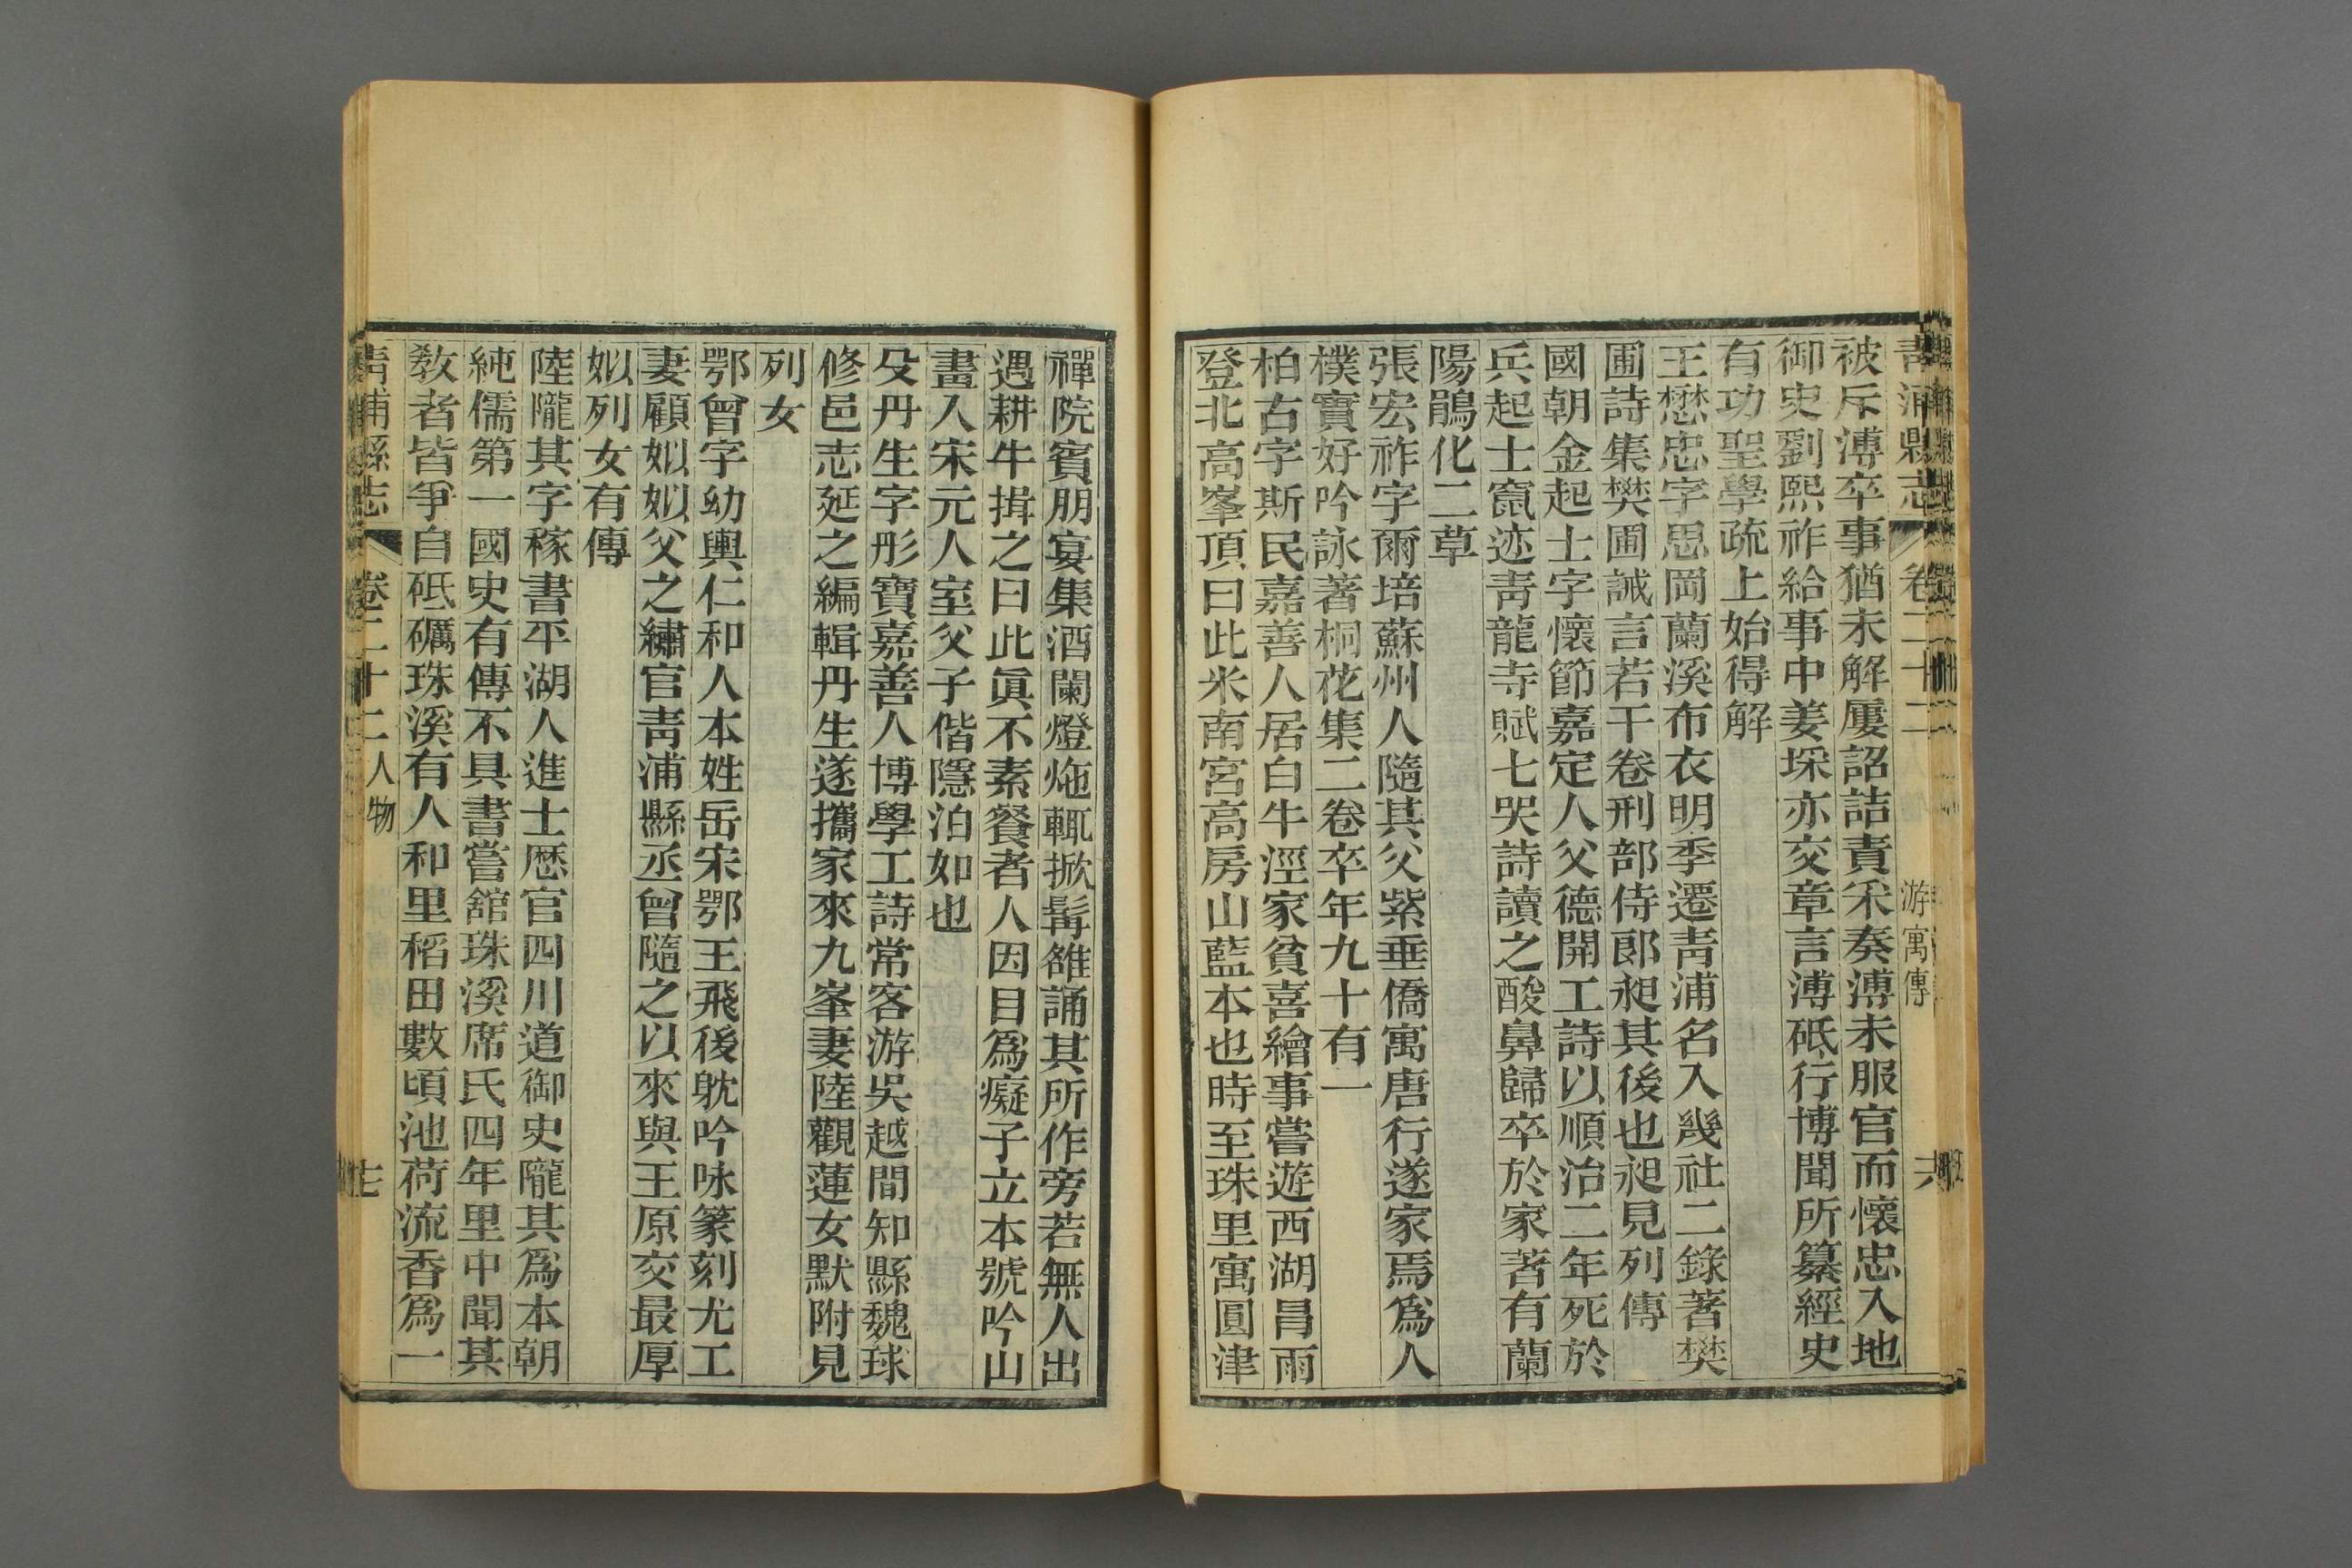 青浦縣志 卷二十二 游寓傳 六
被斥溥卒事猶未解屢詔詰責采奏溥未服官而懷忠入地
御史劉熙祚給事中姜埰亦交章言溥砥行博聞所纂經史
有功聖學疏上始得解
王懋忠字思岡蘭溪布衣明季遷青浦名入幾社二錄著樊
圃詩集樊圃誡言若干卷刑部侍郎昶其後也昶見列傳
國朝金起士字懷節嘉定人父德開工詩以順治二年死於
兵起士竄迹青龍寺賦七哭詩讀之酸鼻歸卒於家著有蘭
陽鵑化二草
張宏祚字爾培蘇州人隨其父紫垂僑寓唐行遂家焉爲人
樸實好吟詠著桐花集二卷卒年九十有一
柏古字斯民嘉善人居白牛涇家貧喜繪事嘗遊西湖昌雨
登北高峯頂曰此米南宮高房山藍本也時至珠里寓圓津
禪院賓朋宴集酒闌燈灺輒掀髯雒誦其所作旁若無人出
遇耕牛揖之曰此眞不素餐者人因目爲癡子立本號吟山
畫入宋元人室父子偕隱泊如也
殳丹生字彤寶嘉善人博學工詩常客游吳越間知縣魏球
修邑志延之編輯丹生遂攜家來九峯妻陸觀蓮女默附見
列女
鄂曾字幼輿仁和人本姓岳宋鄂王飛後躭吟咏篆刻尤工
妻顧姒姒父之繡官青浦縣丞曾隨之以來與王原交最厚
姒列女有傳
陸隴其字稼書平湖人進士歷官四川道御史隴其爲本朝
純儒第一國史有傳不具書嘗舘珠溪席氏四年里中聞其
敎者皆爭自砥礪珠溪有人和里稻田數頃池荷流香爲一
青浦縣志 卷二十二 人物 七